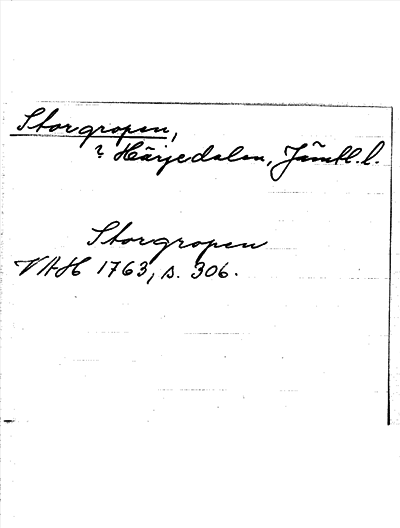 Storgropen,
? Härjedalen, Jämtl. l.
Storgropen
VAH 1763, s. 306.